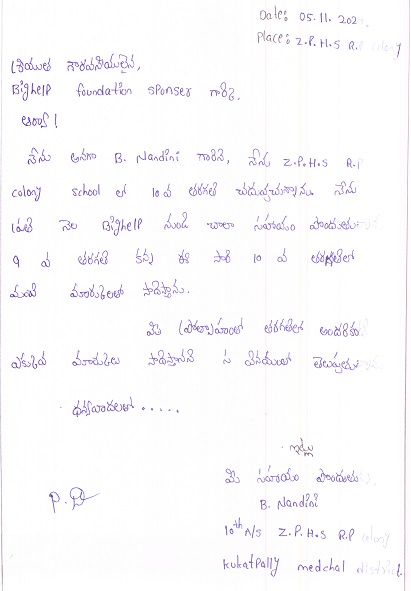 Date: 05.11.202
Place: Z.P.H.S R.P colony
శ్రీయుత గౌరవనీయులైన,
Bighelp foundation sponser గారికి,
ఆర్యా!
నేను అనగా B. Nandini గారిని, నేను Z.P.H.S R.P
colony school లో 10 వ తరగతి చదువుచున్నాను. నేను
ప్రతి నెల Bighelp నుండి చాలా సహాయం పొందుతు
9 వ తరగతి కన్న ఈ సారి 10 వ తరగతిలో
మంచి మార్కులతో సాధిస్తాను.
మీ ప్రోత్సాహంతో తరగతిలో అందరికన్న
ఎక్కువ మార్కులు సాధిస్తానని వినయంతో తెలుపుతు
ధన్యవాదాలతో.....
ఇట్లు
మీ సహాయం పొందుతు
B. Nandini
10th A/S Z.P.H.S R.P colony
kukatpally medchal district.